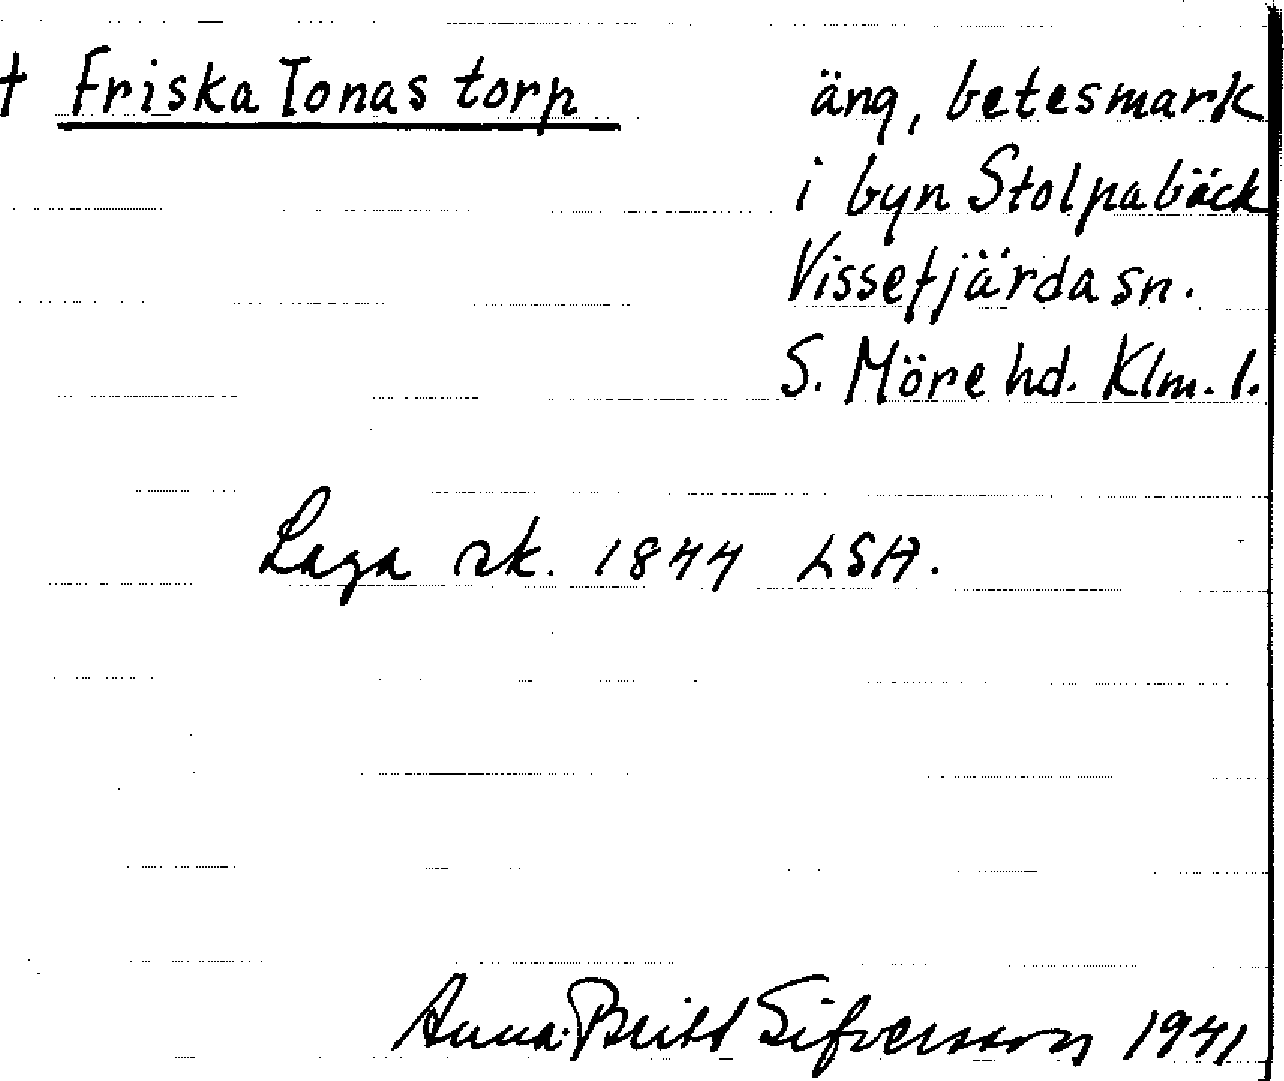 † Friska Jonas torp
äng, betesmark
i byn Stolpabäck
Vissefjärda sn.
S. Möre hd. Klm. l.
Laga sk. 1844 LSA.
Anna-Britt Sifversson 1941